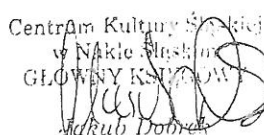 Centrum Kultury Śląskiej
w Nakle Śląskim
GŁÓWNY KSIĘGOWY
Jakub